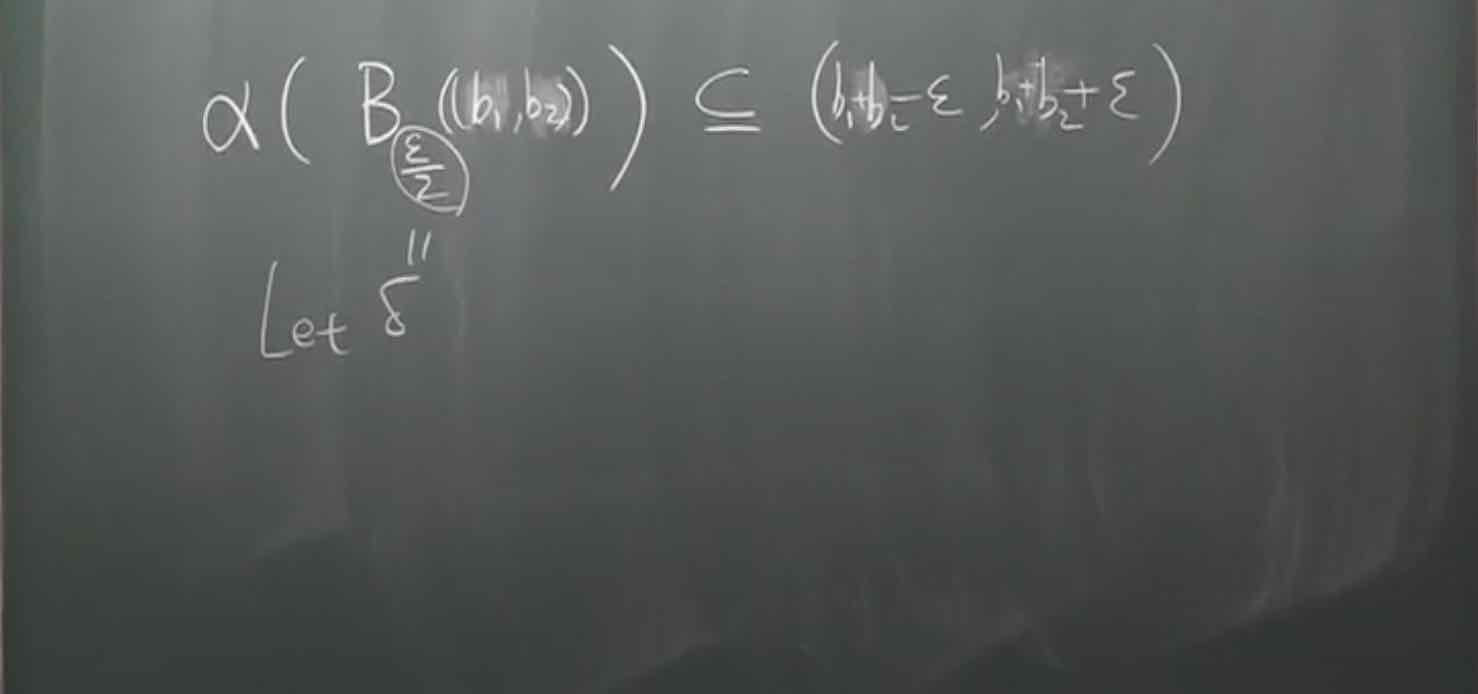 α( B_{ε/2} ((b₁,b₂)) ) ⊆ (b₁+b₂-ε, b₁+b₂+ε)
॥
Let δ